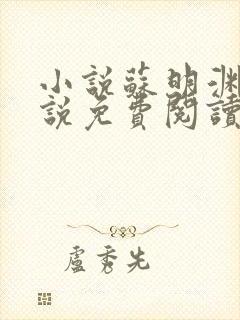 小説蘇明淵
說免費閱讀
盧秀先